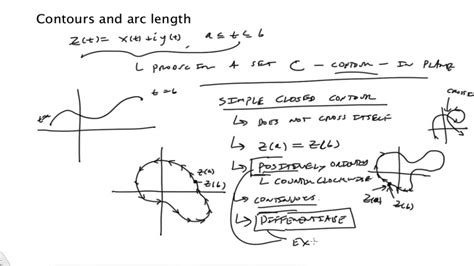 Contours and arc length
z(t) = x(t) + iy(t), a ≤ t ≤ b
↳ PRODUCING A SET C - CONTOUR - IN PLANE
t=b
SIMPLE CLOSED CONTOUR
↳ DOES NOT CROSS ITSELF
↳ z(a) = z(b)
↳ POSITIVELY ORIENTED
↳ COUNTERCLOCKWISE
↳ CONTINUOUS
↳ DIFFERENTIABLE
EX
z(a)
z(b)
z(a) z(b)